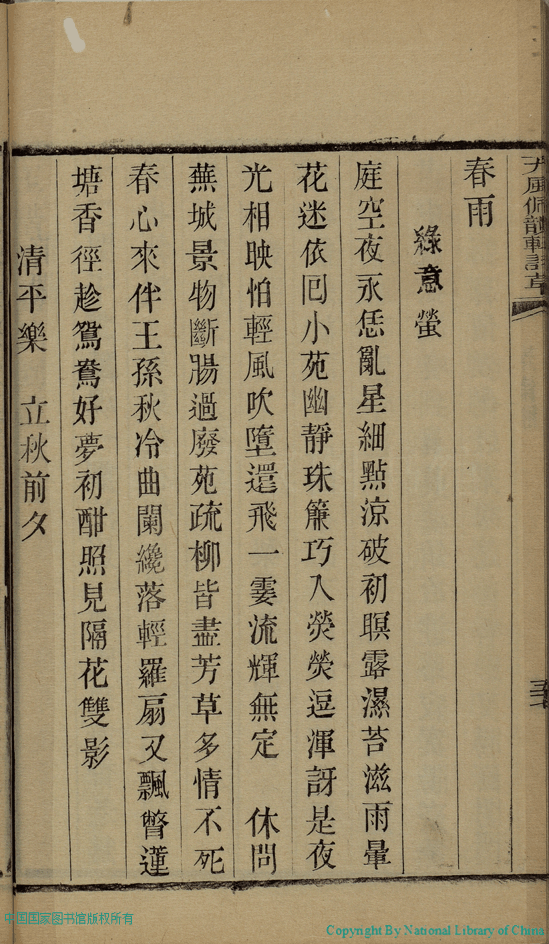 春雨
綠意 螢
庭空夜永恁亂星細點涼破初暝露濕苔滋雨暈
花迷依囘小苑幽靜珠簾巧入熒熒逗渾訝是夜
光相映怕輕風吹墮還飛一霎流輝無定 休問
蕪城景物斷腸過廢苑疏柳皆盡芳草多情不死
春心來伴王孫秋冷曲闌纔落輕羅扇又飄瞥蓮
塘香徑趁鴛鴦好夢初酣照見隔花雙影
清平樂 立秋前夕
中国国家图书馆版权所有
Copyright By National Library of China